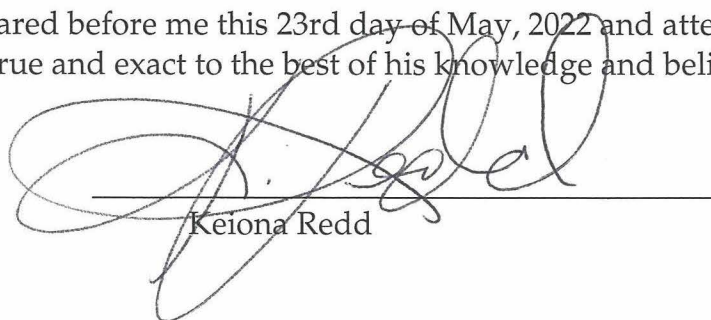 ared before me this 23rd day of May, 2022 and atte
rue and exact to the best of his knowledge and beli
Keiona Redd